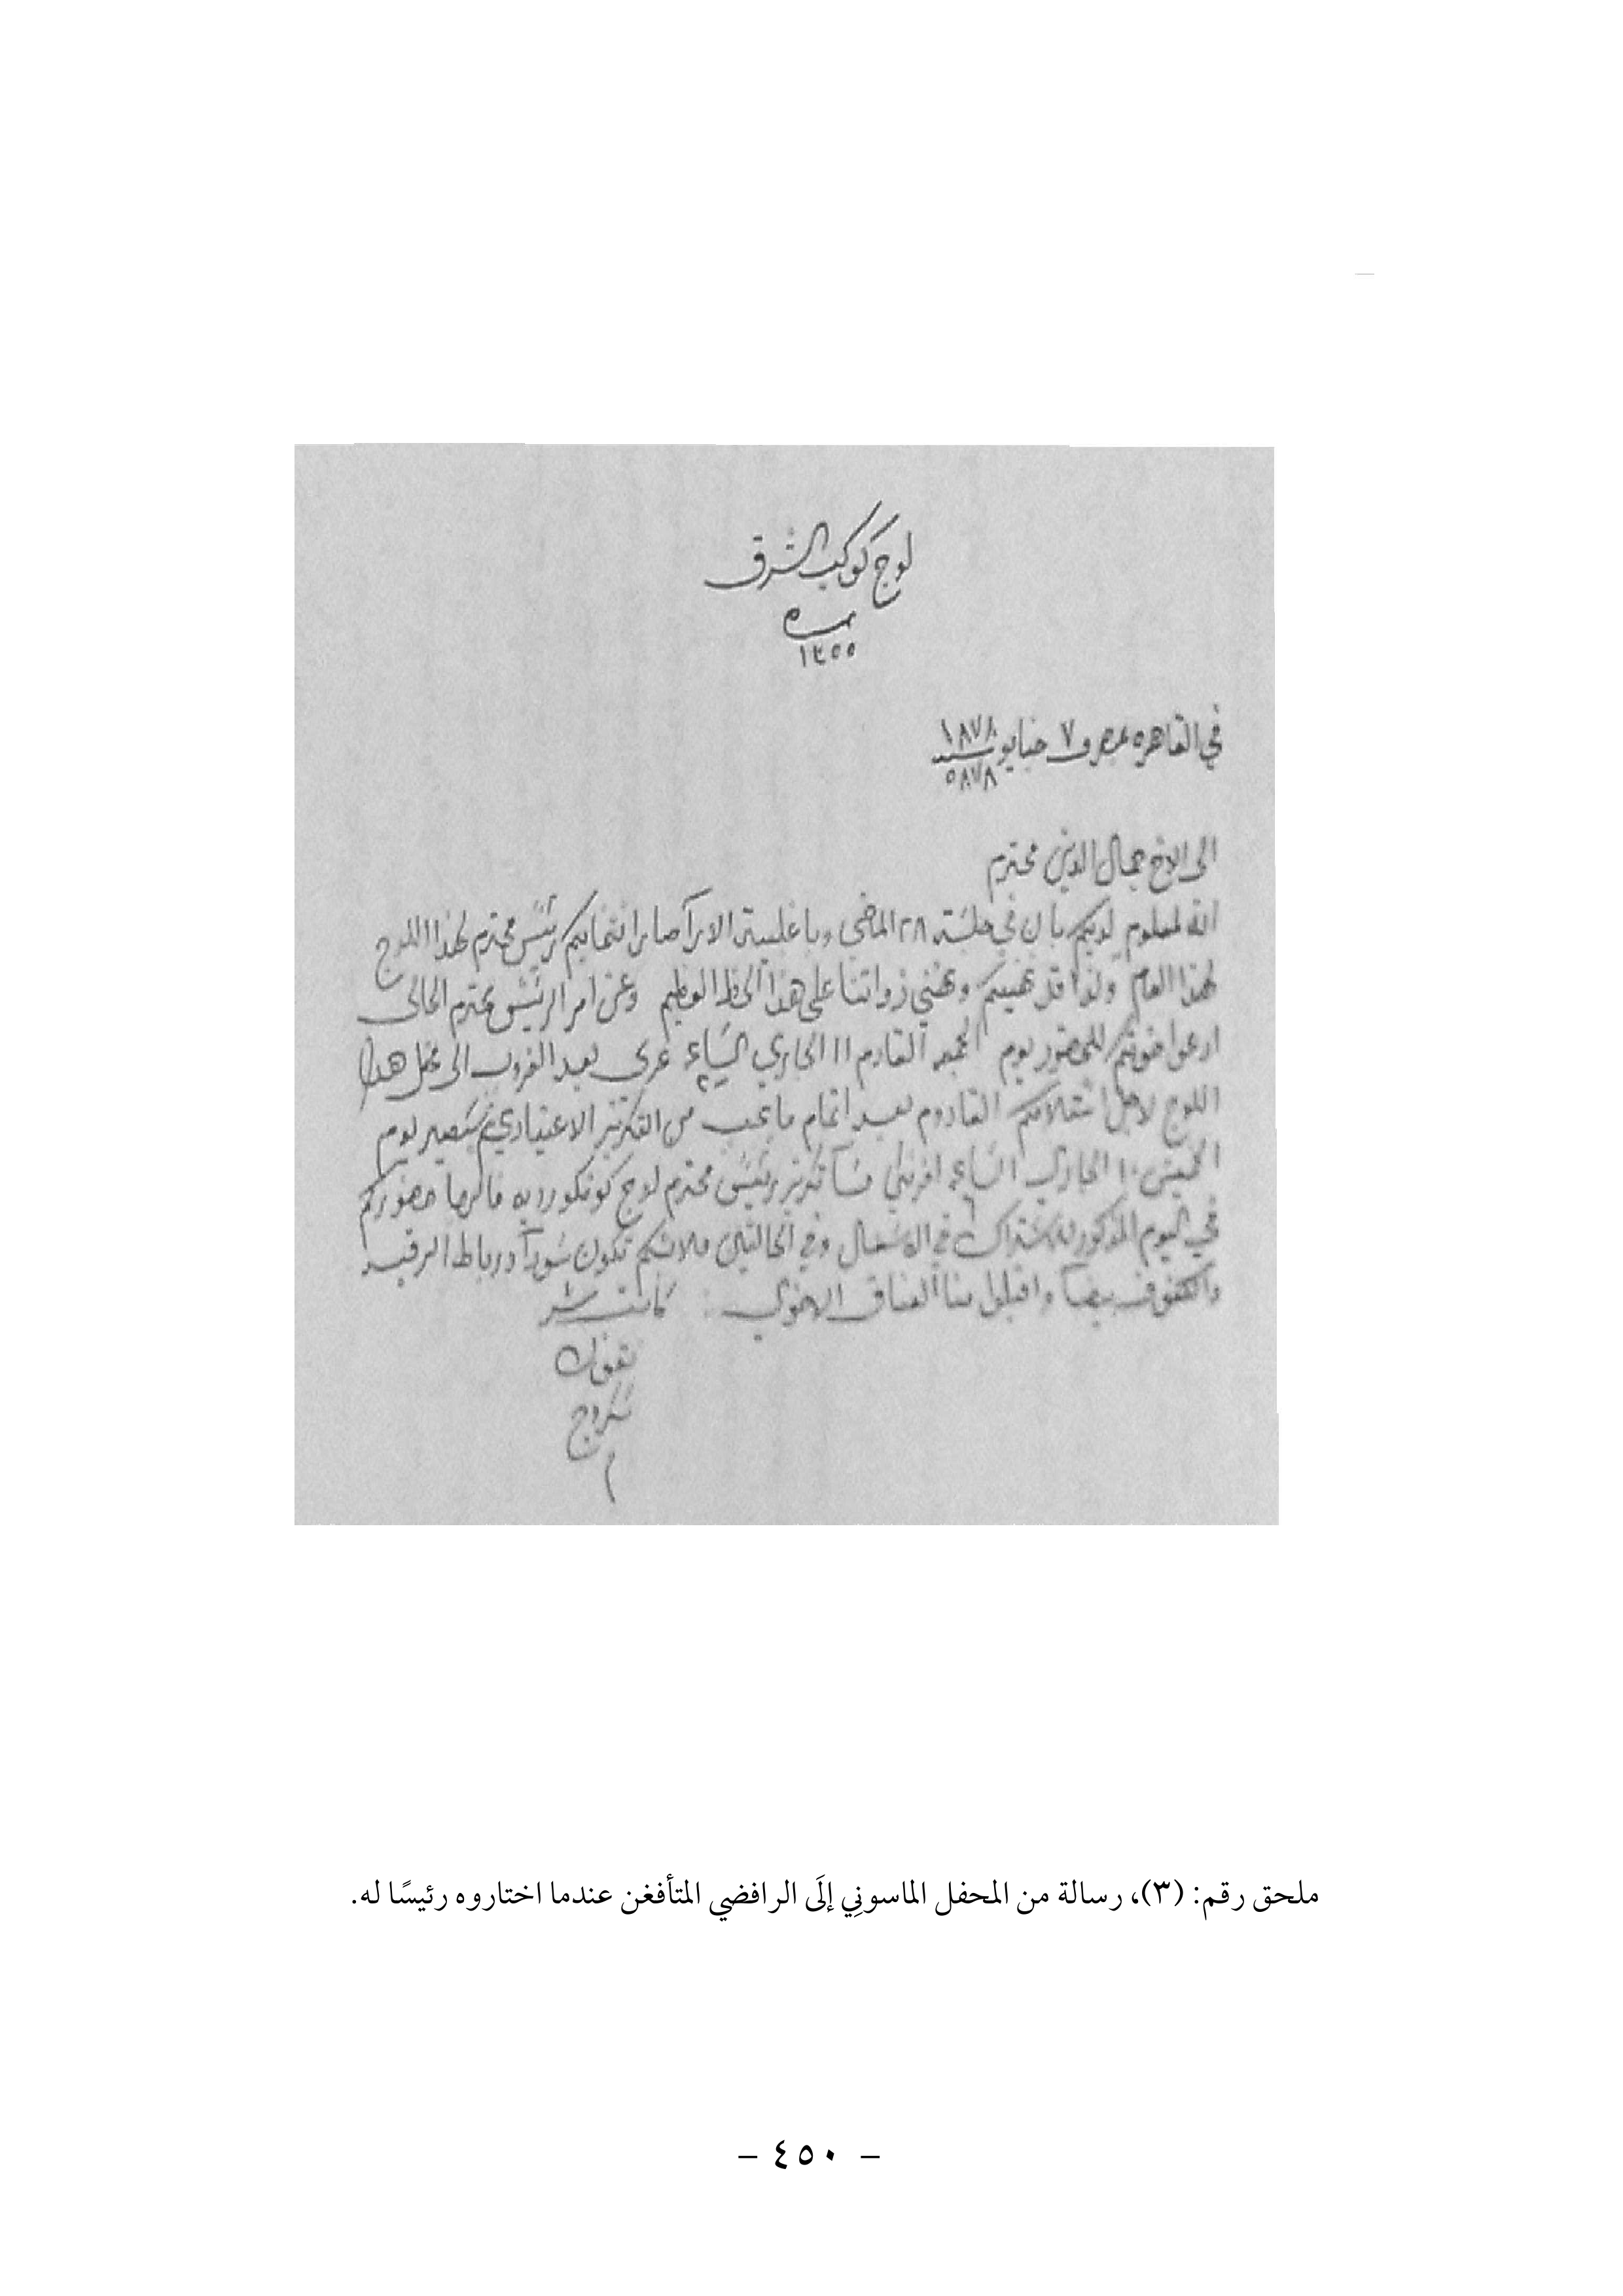 لوج كوكب الشرق
نمره
١٣٥٥
في القاهره بمصر في ٧ جنايو سنه ١٨٧٨
٥٨٧٨
الى الاخ جمال الدين محترم
انه لمعلوم لديكم بان في جلسة ٢٨ الماضي وباغلبية الارآ صار انتخابكم رئيس محترم لهذا اللوج
لهذا العام ولذا قد نهنيكم ونهني ذواتنا على هذا الحظ العظيم وعن امر الرئيس محترم الحالى
ادعو اخوتكم للحضور يوم الجمعه القادم ١١ الجاري الساعة ٢ عربى بعد الغروب الى محفل هذا
اللوج لاجل استلامكم القادوم بعد اتمام ما يجب من التكريز الاعتيادي ثم سيصير يوم
الخميس ١٠ الجاري الساعه ٦ افرنكي مسآ تكريز رئيس محترم لوج كونكورديه فالرجا حضوركم
في اليوم المذكور للاشتراك في الاشغال وفي الحالتين ملابسكم تكون سودآ ورباط الرقبه
والكفوف بيضآ واقبلوا منا العناق الاخوي كاتب سر
نقولا
سكروج
ملحق رقم: (٣)، رسالة من المحفل الماسونِي إلَى الرافضي المتأفغن عندما اختاروه رئيسًا له.
– ٤٥٠ –